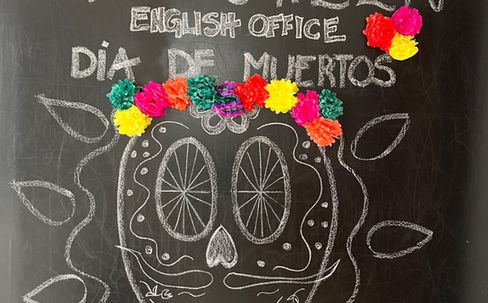 ENGLISH OFFICE
DIA DE MUERTOS